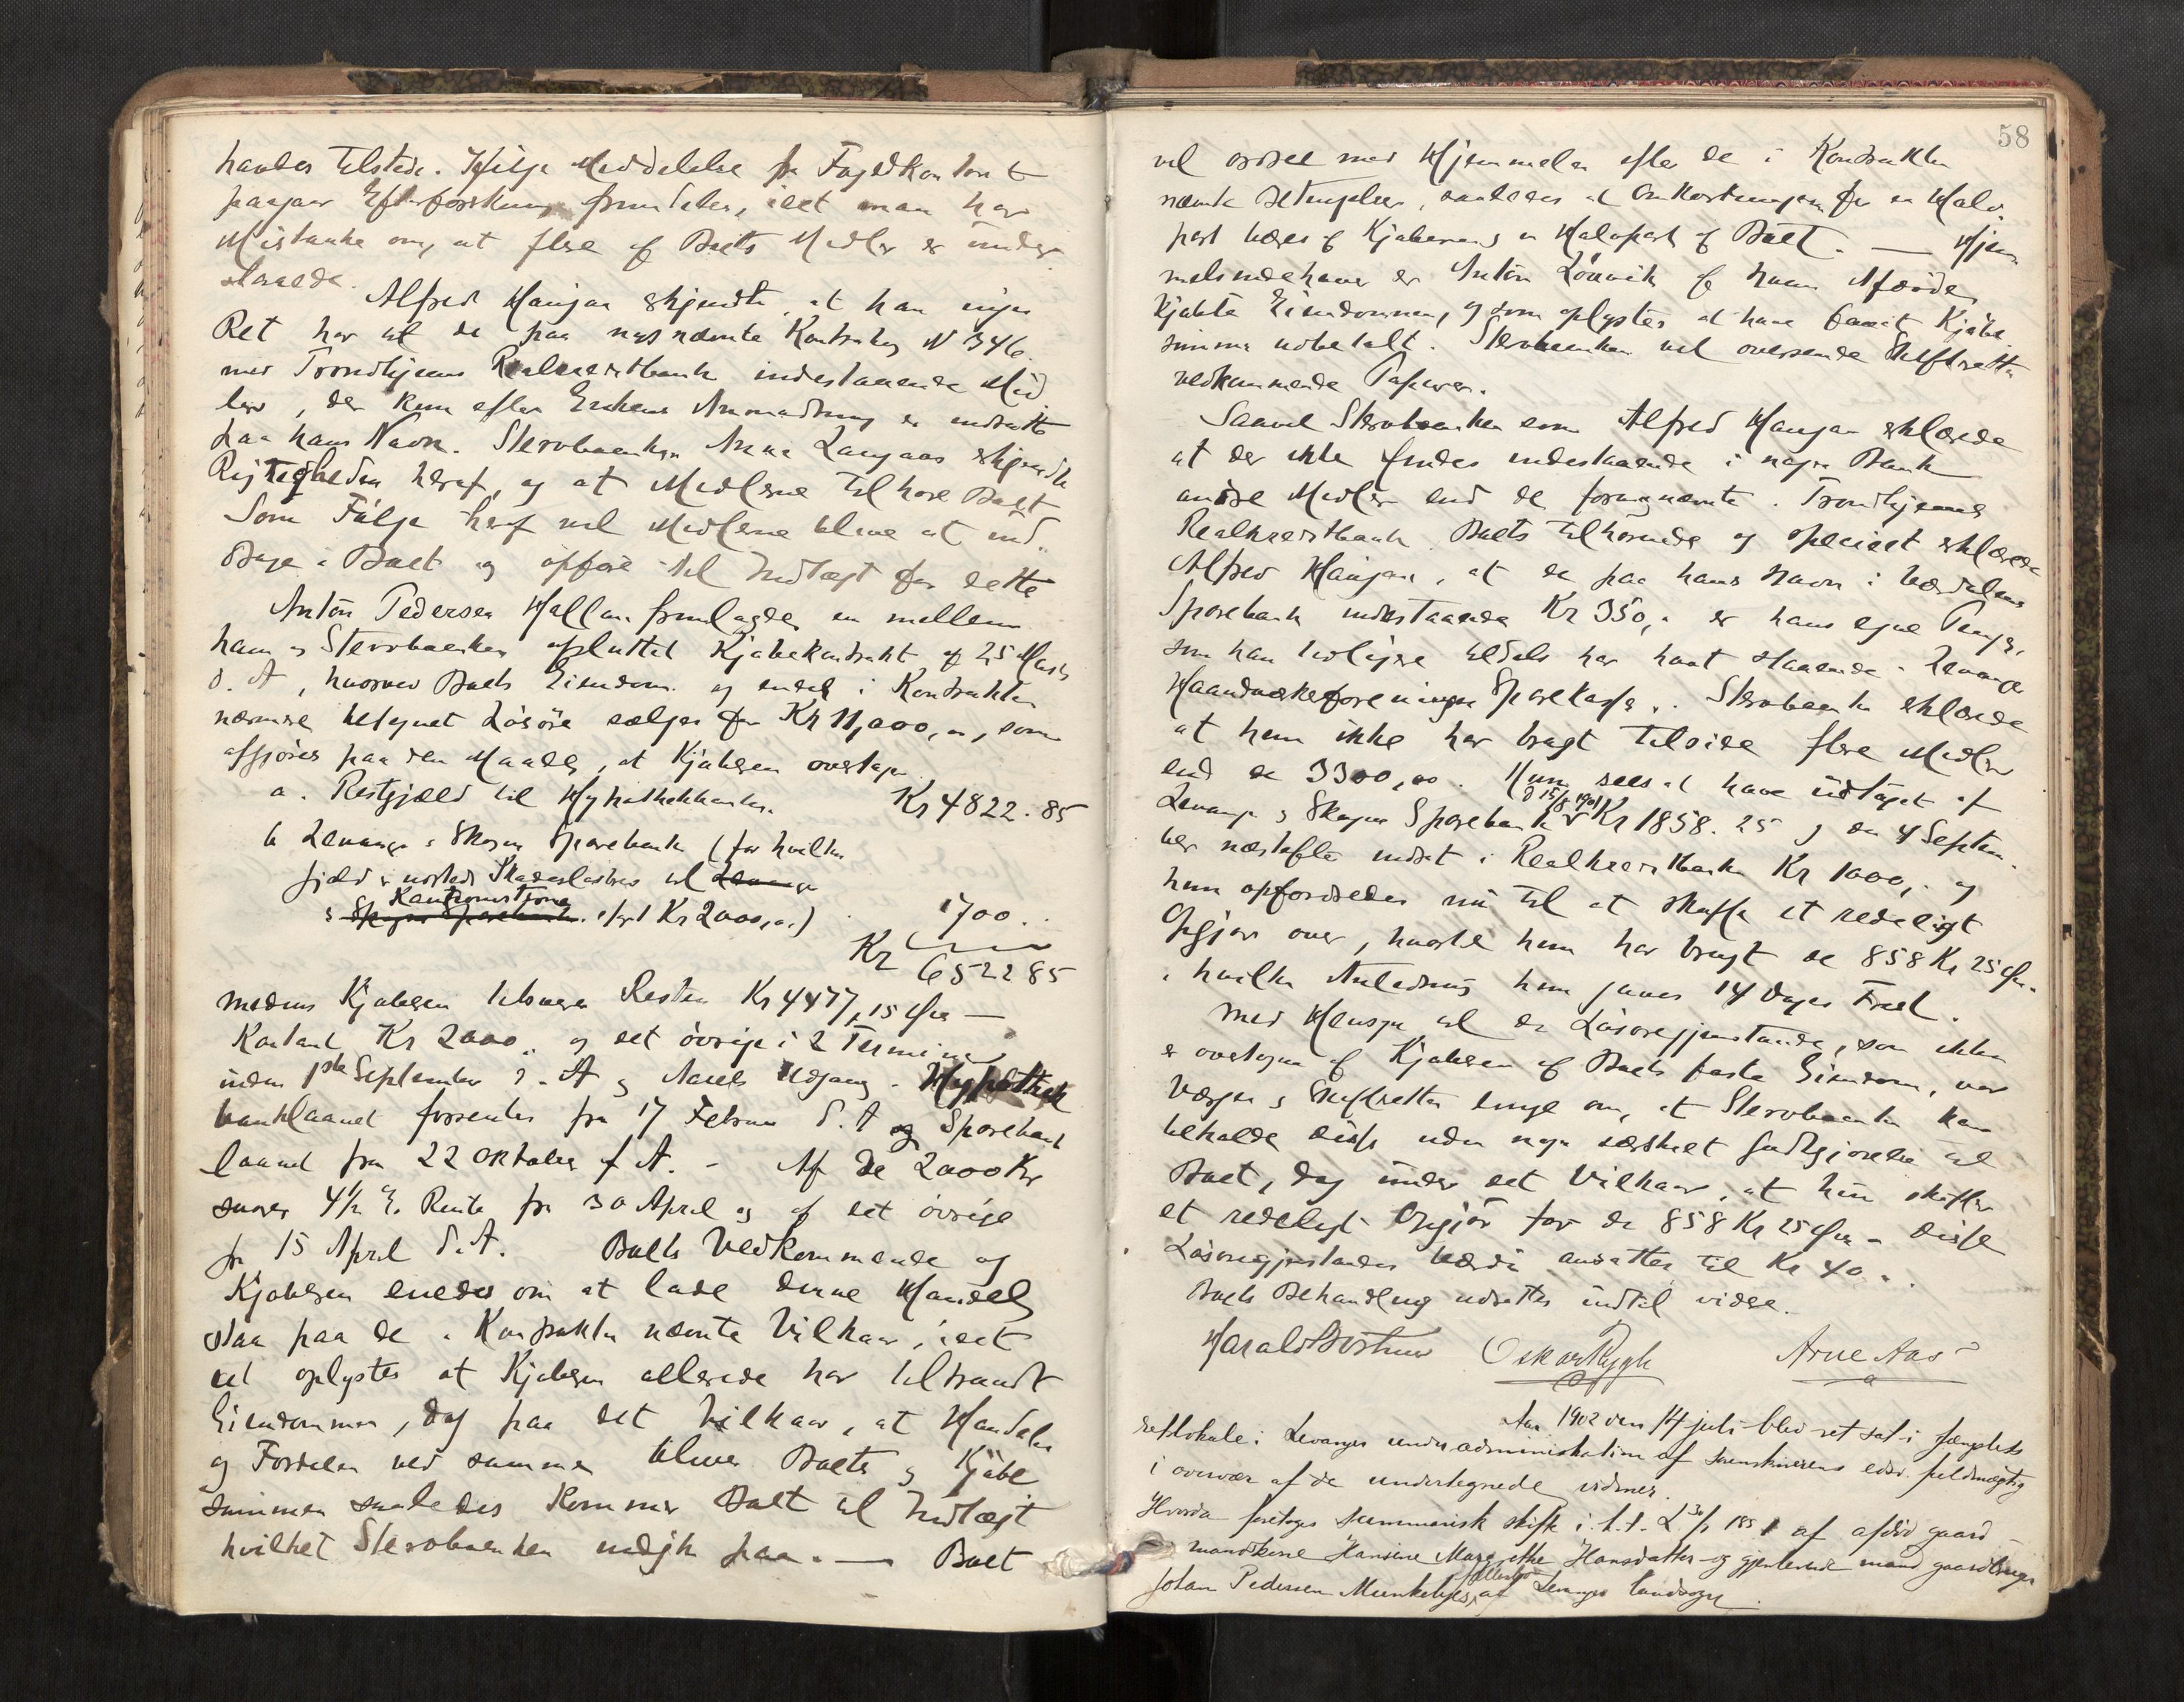 handes tilstede. Ifølge Meddelelse fra Fogedkontoret
paagaar Efterforskning fremdeles, idet man har
Mistanke om, at flere af Boets Midler er under
slaaede.
Alfred Haugan erkjendte, at han ingen
Ret har til de paa nysnævnte Kontrabog N 346
med Trondhjems Realkreditbank indestaaende Mid
ler, der kun efter Enkens Anmodning er indsatte
paa hans Navn. Stervboenken Anna Langaas erkjendte
Rigtigheden heraf, og at Midlerne tilhøre Boet
Som Følge heraf vil Midlerne blive at ind
drage i Boet og opføre til Indtægt for dette
Anton Pedersen Hallan fremlagde en mellem
ham og Stervboenken afsluttet Kjøbekontrakt af 25 Marts
d. A, hvorved Boets Eiendom og endel i Kontrakten
nærmere betegnet Løsøre sælges for Kr 11,000,00, som
afgjøres paa den Maade, at Kjøberen overtager
a. Restgjæld til Hypothekbanken. Kr 4822.85
b Levanger & Skogns Sparebank (for hvilken
gjæld er udstedt Skadesløsbrev til Levanger
Kautionisterne
& Skogns Sparebank. stort Kr 2000,00) 1700..
Kr 6522 85
medens Kjøberen udbetaler Resten Kr 4477,15 Øre —
Kontant Kr 2000,, og det øvrige i 2 Terminer
inden 1ste September d. A og Aarets Udgang. Hypothek
banklaanet forrentes fra 17 Februar d. A og Sparebank
laanet fra 22 Oktober f A. - Af de 2000 Kr
svares 4½ % Rente fra 30 April og af det øvrige
fra 15 April d. A. Boets Vedkommende og
Kjøberen enedes om at lade denne Handel
staa paa de i Kontrakten nævnte Vilkaar, idet
det oplystes at Kjøberen allerede har tiltraadt
Eiendommen, dog paa det Vilkaar, at Handelen
og Fordelen ved samme bliver Boets og Kjøbe
summen saaledes kommer Boet til Indtægt
hvilket Stervboenken indgik paa. — Boet
58
vil ordne med Hjemmelen efter de i Kontrakten
nævnte Betingelser, saaledes at Omkostningerne for en Halv
part bæres af Kjøberen og en Halvpart af Boet. — Hjem
melsindehaver er Anton Lønvik af hvem Afdøde
kjøbte Eiendommen, og som oplystes at have faaet Kjøbe
summen udbetalt. Stervboenken vil oversende Skifteretten
vedkommende Papirer.
Saavel Stervboenken som Alfred Haugan erklærede
at der ikke findes indestaaende i nogen Bank
andre Midler end de foran nævnte i Trondhjems
Realkreditbank Boets tilhørende og specielt erklærede
Alfred Haugan, at de paa hans Navn i Værdalens
Sparebank indestaaende Kr 350,- er hans egne Penge,
som han tidligere tildels har havt staaende i Levanger
Haandværkerforenings Sparekasse. Stervboenken erklærede
at hun ikke har bragt tilside flere Midler
end de 3300,00. Hun sees at have udtaget af
d 15/8 1901
Levanger & Skogns Sparebank Kr 1858.25 og den 4 Septem
ber næstefter indsat i Realkreditbanken Kr 1000,- og
hun opfordredes nu til at skaffe et redeligt
Opgjør over, hvortil hun har brugt de 858 Kr 25 Øre.
i hvilken Anledning hun gaves 14 Dages Frist.
Med Hensyn til de Løsøregjenstande, som ikke
er overtagne af Kjøberen af Boets faste Eiendom, var
Værgen og Skifteretten enige om, at Stervboenken kan
beholde disse uden nogen særskilt Godtgjørelse til
Boet, dog under det Vilkaar, at hun skaffer
et redeligt Opgjør for de 858 Kr 25 Øre - disse
Løsøregjenstandes Værdi ansættes til Kr 40..
Boets Behandling udsættes indtil videre.
Harald Bothner Oskar Rygh Arne Aas
Aar 1902 den 14 juli blev ret sat i fængslets
retslokale i Levanger under administration af sorenskriverens edsv. fuldmægtig
i overvær af de undertegnede vidner.
Hvorda foretoges summarisk skifte i h. t. L 30/7 1851 af afdød gaard-
mandkone Hansine Margrethe Hansdatter og gjenlevende mand gaardbruger
Johan Pedersen Munkeby af Levanger landsogn.